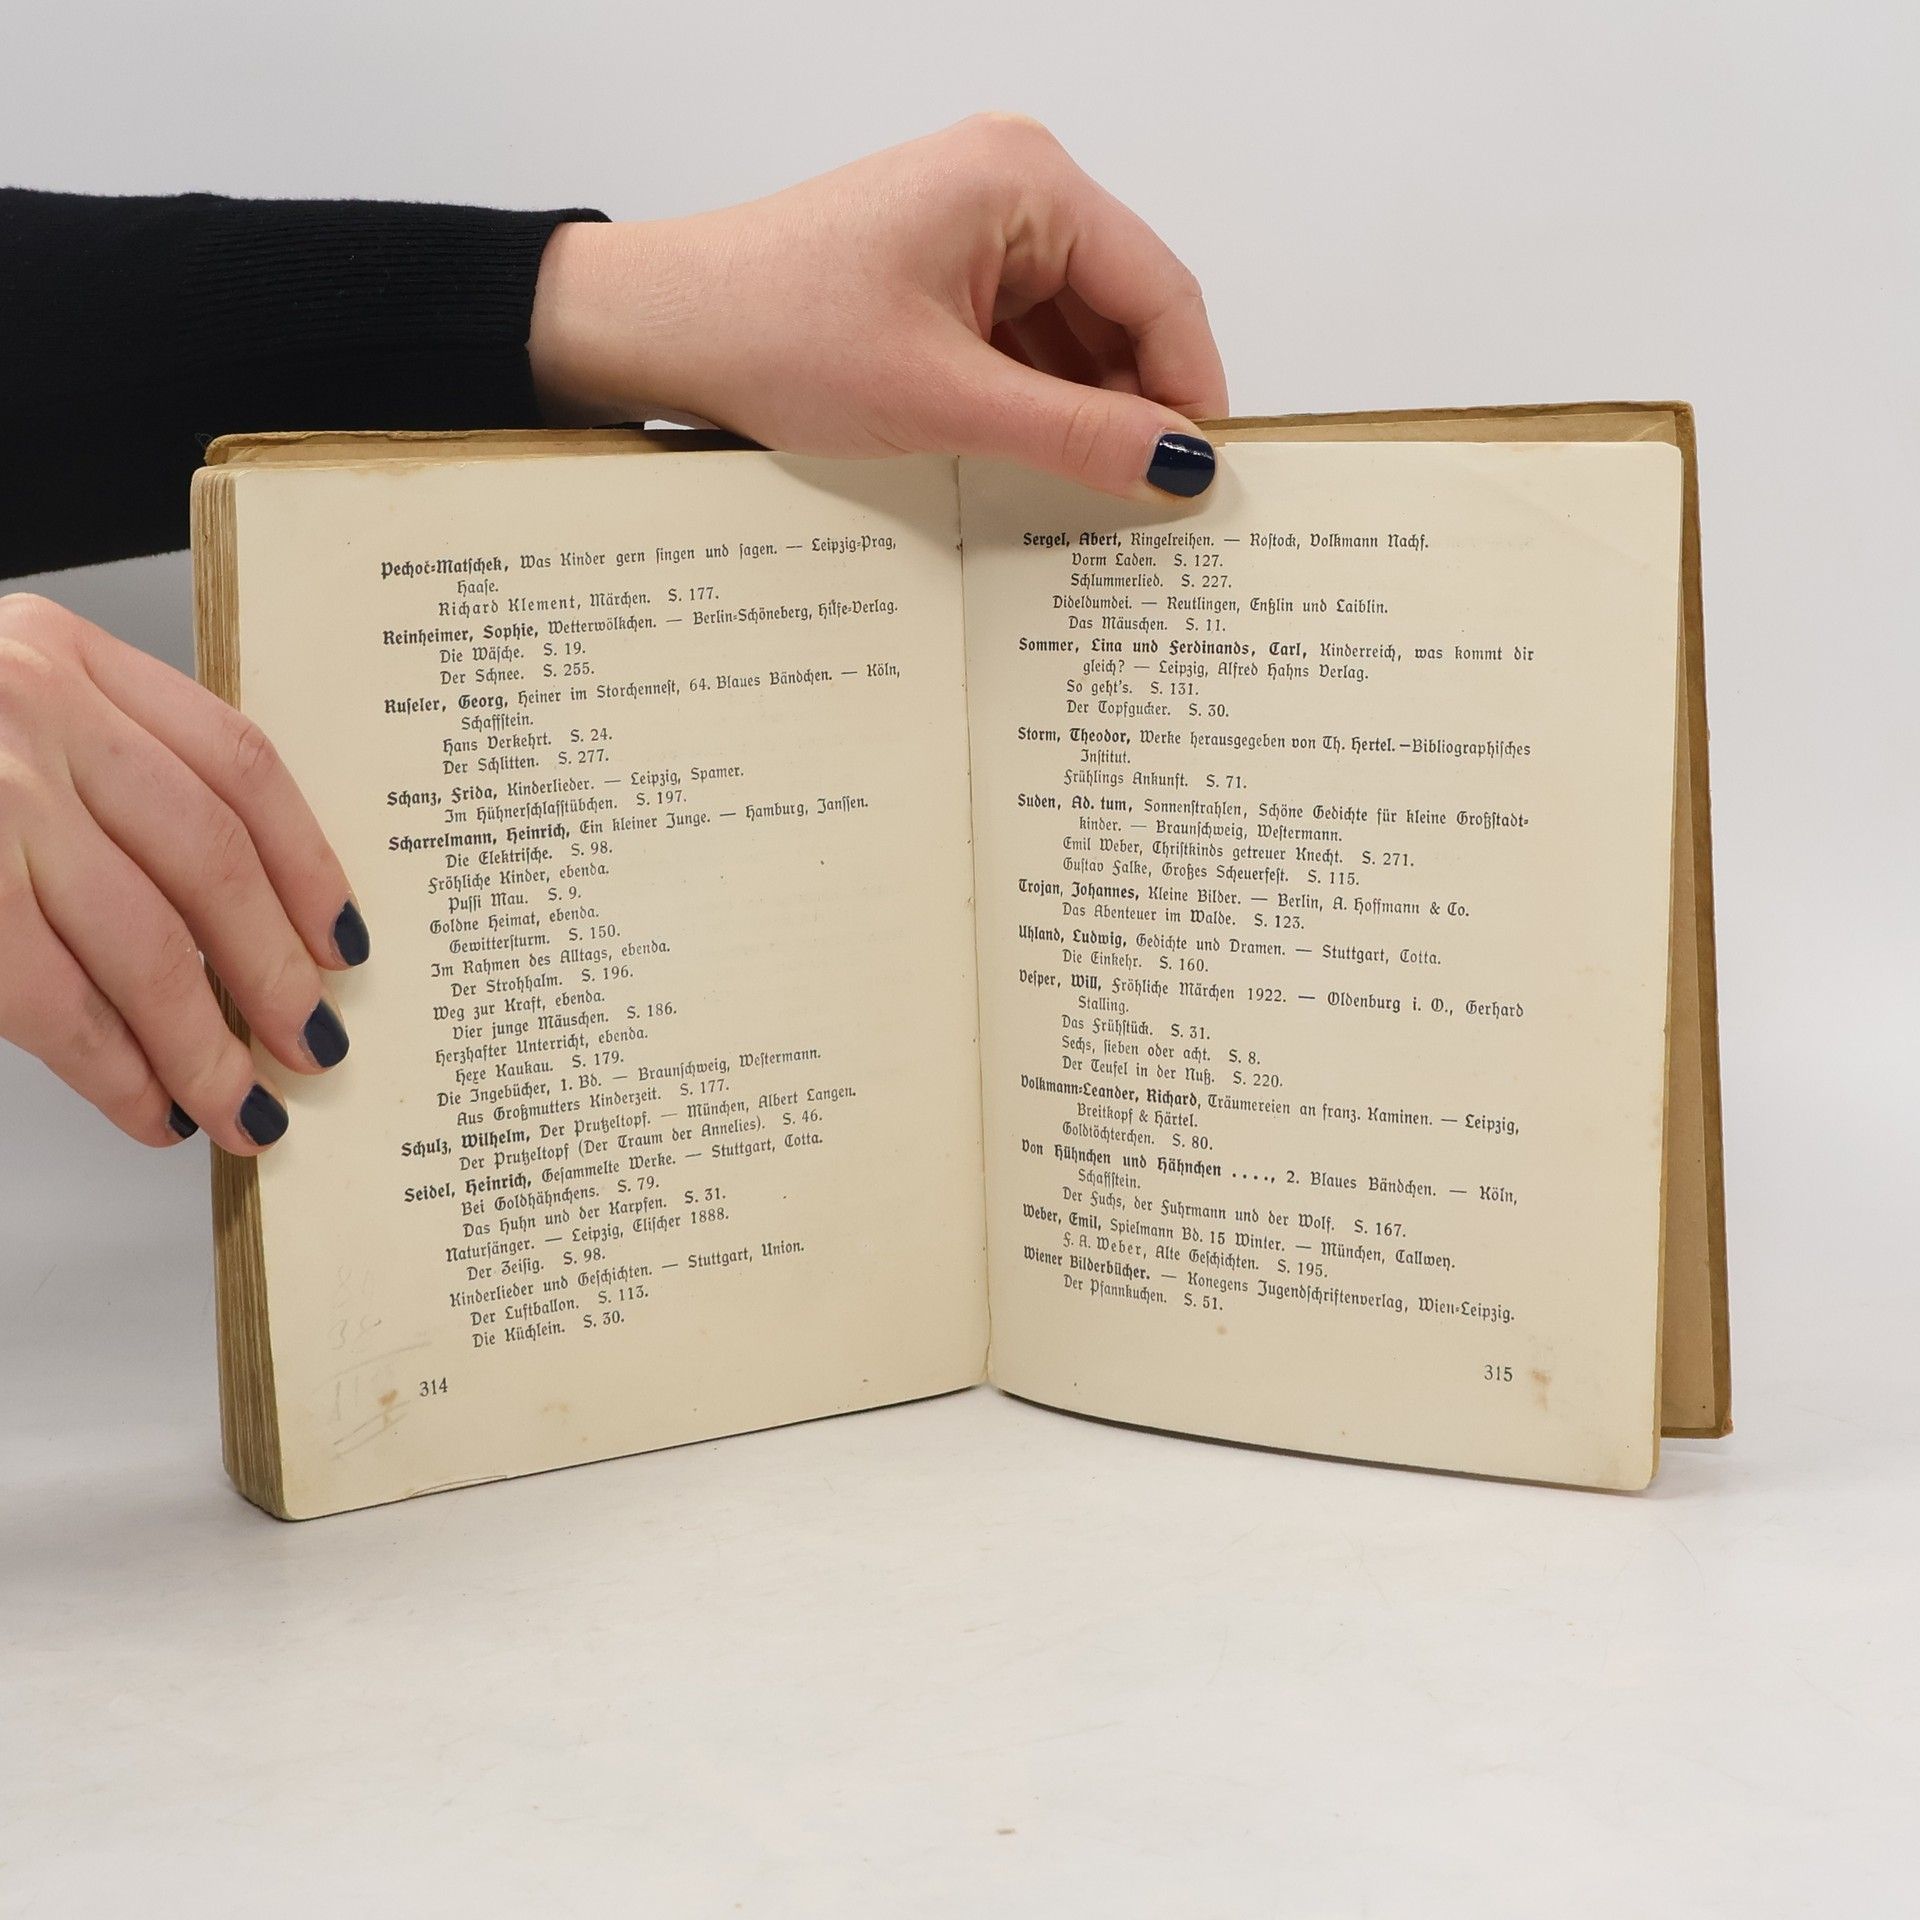 Pechoč-Matschek, Was Kinder gern singen und sagen. — Leipzig-Prag,
Haase.
Richard Klement, Märchen. S. 177.
Reinheimer, Sophie, Wetterwölkchen. — Berlin-Schöneberg, Hilfe-Verlag.
Die Wäsche. S. 19.
Der Schnee. S. 255.
Ruseler, Georg, Heiner im Storchennest, 64. Blaues Bändchen. — Köln,
Schaffstein.
Hans Verkehrt. S. 24.
Der Schlitten. S. 277.
Schanz, Frida, Kinderlieder. — Leipzig, Spamer.
Im Hühnerschlafstübchen. S. 197.
Scharrelmann, Heinrich, Ein kleiner Junge. — Hamburg, Janssen.
Die Elektrische. S. 98.
Fröhliche Kinder, ebenda.
Pussi Mau. S. 9.
Goldne Heimat, ebenda.
Gewittersturm. S. 150.
Im Rahmen des Alltags, ebenda.
Der Strohhalm. S. 196.
Weg zur Kraft, ebenda.
Vier junge Mäuschen. S. 186.
Herzhafter Unterricht, ebenda.
Hexe Kaukau. S. 179.
Die Ingebücher, 1. Bd. — Braunschweig, Westermann.
Aus Großmutters Kinderzeit. S. 177.
Schulz, Wilhelm, Der Prutzeltopf. — München, Albert Langen.
Der Prutzeltopf (Der Traum der Annelies). S. 46.
Seidel, Heinrich, Gesammelte Werke. — Stuttgart, Cotta.
Bei Goldhähnchens. S. 79.
Das Huhn und der Karpfen. S. 31.
Natursänger. — Leipzig, Elischer 1888.
Der Zeisig. S. 98.
Kinderlieder und Geschichten. — Stuttgart, Union.
Der Luftballon. S. 113.
Die Küchlein. S. 30.
314
Sergel, Abert, Ringelreihen. — Rostock, Volkmann Nachf.
Vorm Laden. S. 127.
Schlummerlied. S. 227.
Dideldumdei. — Reutlingen, Enßlin und Laiblin.
Das Mäuschen. S. 11.
Sommer, Lina und Ferdinands, Carl, Kinderreich, was kommt dir
gleich? — Leipzig, Alfred Hahns Verlag.
So geht's. S. 131.
Der Topfgucker. S. 30.
Storm, Theodor, Werke herausgegeben von Th. Hertel. — Bibliographisches
Institut.
Frühlings Ankunft. S. 71.
Suden, Ad. tum, Sonnenstrahlen, Schöne Gedichte für kleine Großstadt-
kinder. — Braunschweig, Westermann.
Emil Weber, Christkinds getreuer Knecht. S. 271.
Gustav Falke, Großes Scheuerfest. S. 115.
Trojan, Johannes, Kleine Bilder. — Berlin, A. Hoffmann & Co.
Das Abenteuer im Walde. S. 123.
Uhland, Ludwig, Gedichte und Dramen. — Stuttgart, Cotta.
Die Einkehr. S. 160.
Vesper, Will, Fröhliche Märchen 1922. — Oldenburg i. O., Gerhard
Stalling.
Das Frühstück. S. 31.
Sechs, sieben oder acht. S. 8.
Der Teufel in der Nuß. S. 220.
Volkmann-Leander, Richard, Träumereien an franz. Kaminen. — Leipzig,
Breitkopf & Härtel.
Goldtöchterchen. S. 80.
Von Hühnchen und Hähnchen ...., 2. Blaues Bändchen. — Köln,
Schaffstein.
Der Fuchs, der Fuhrmann und der Wolf. S. 167.
Weber, Emil, Spielmann Bd. 15 Winter. — München, Callwey.
F. A. Weber, Alte Geschichten. S. 195.
Wiener Bilderbücher. — Konegens Jugendschriftenverlag, Wien-Leipzig.
Der Pfannkuchen. S. 51.
315